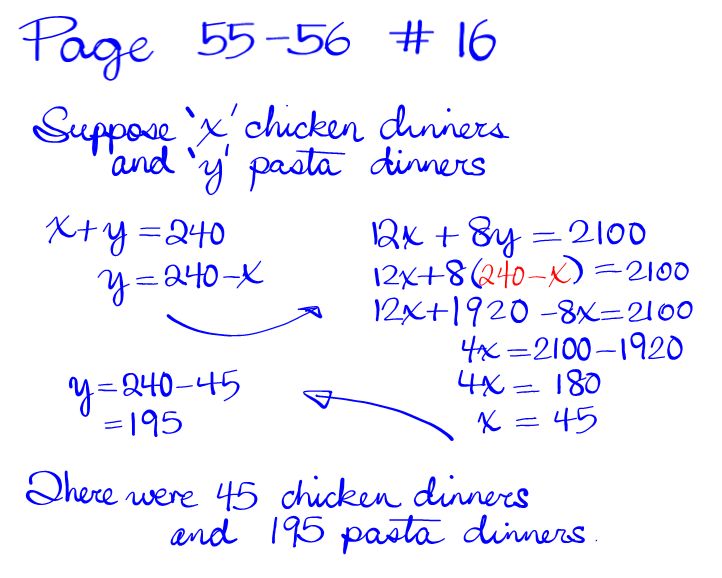 Page 55-56 # 16
Suppose 'x' chicken dinners
and 'y' pasta dinners
x+y=240
y=240-x
12x + 8y = 2100
12x+8(240-x) = 2100
12x+1920 -8x=2100
4x =2100-1920
4x = 180
x = 45
y=240-45
=195
There were 45 chicken dinners
and 195 pasta dinners.